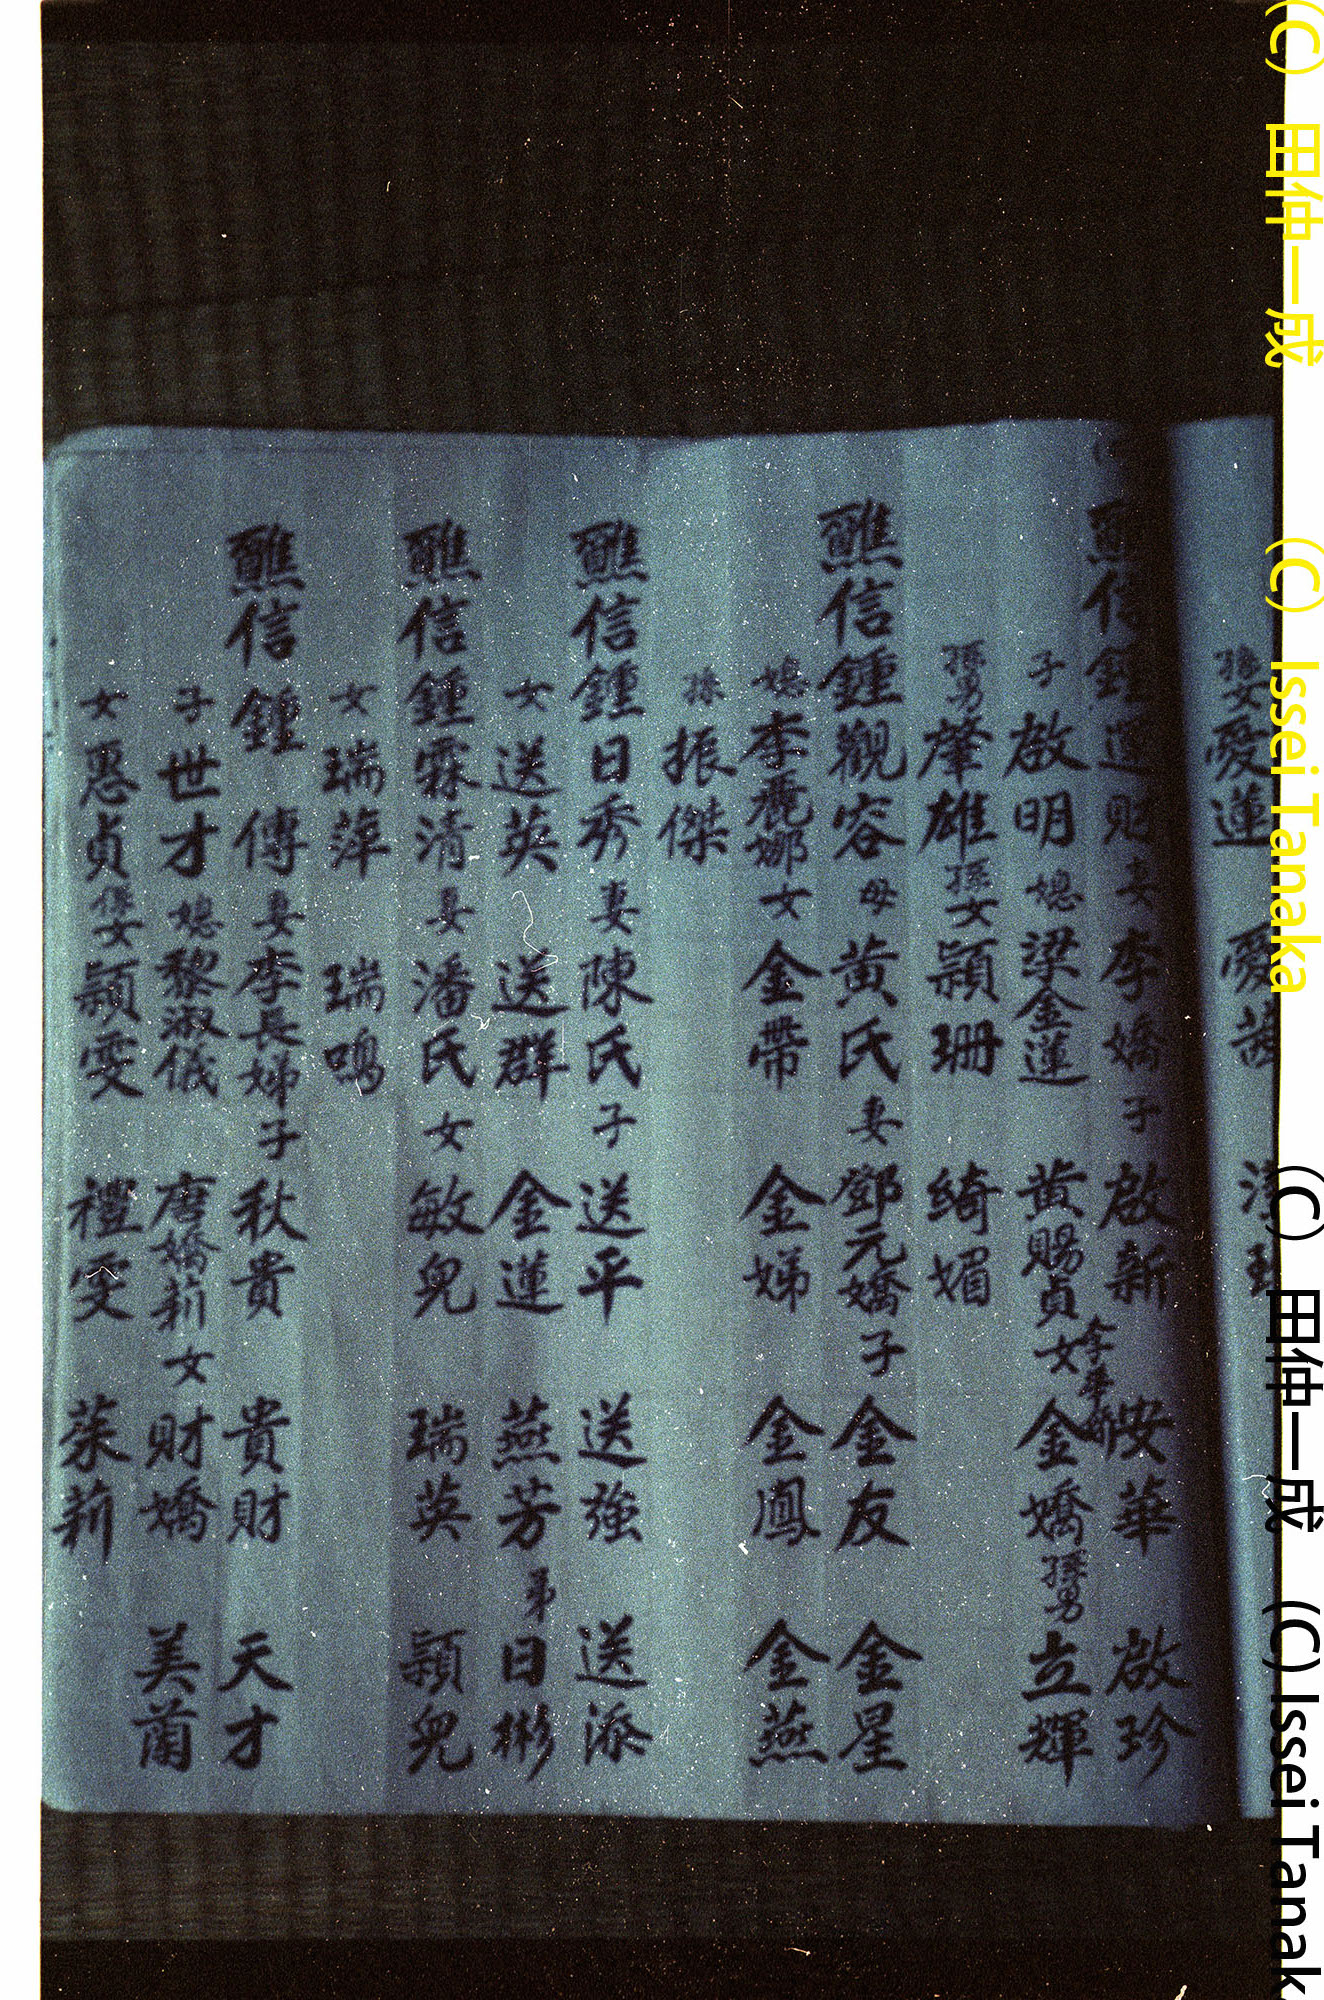 孫女愛蓮 愛
醮信鍾運財妻李嬌子啟新 安華 啟珍
子啟明媳梁金蓮 黃賜貞女金嬌孫男立輝
孫男肇雄孫女穎珊 綺媚
醮信鍾觀容母黃氏妻鄧元嬌子金友 金星
媳李麗娜女金帶 金娣 金鳳 金燕
孫振傑
醮信鍾日秀妻陳氏子送平 送強 送添
女送英 送群 金蓮 燕芳弟日彬
醮信鍾霖清妻潘氏女敏兒 瑞英 穎兒
女瑞萍 瑞鳴
醮信鍾 傳妻李長娣子秋貴 貴財 天才
子世才媳黎淑儀 唐嬌莉女財嬌 美蘭
女愚貞 女穎雯 禮雯 茱莉
(C) 田仲一成 (C) Issei Tanaka
(C) 田仲一成 (C) Issei Tanak